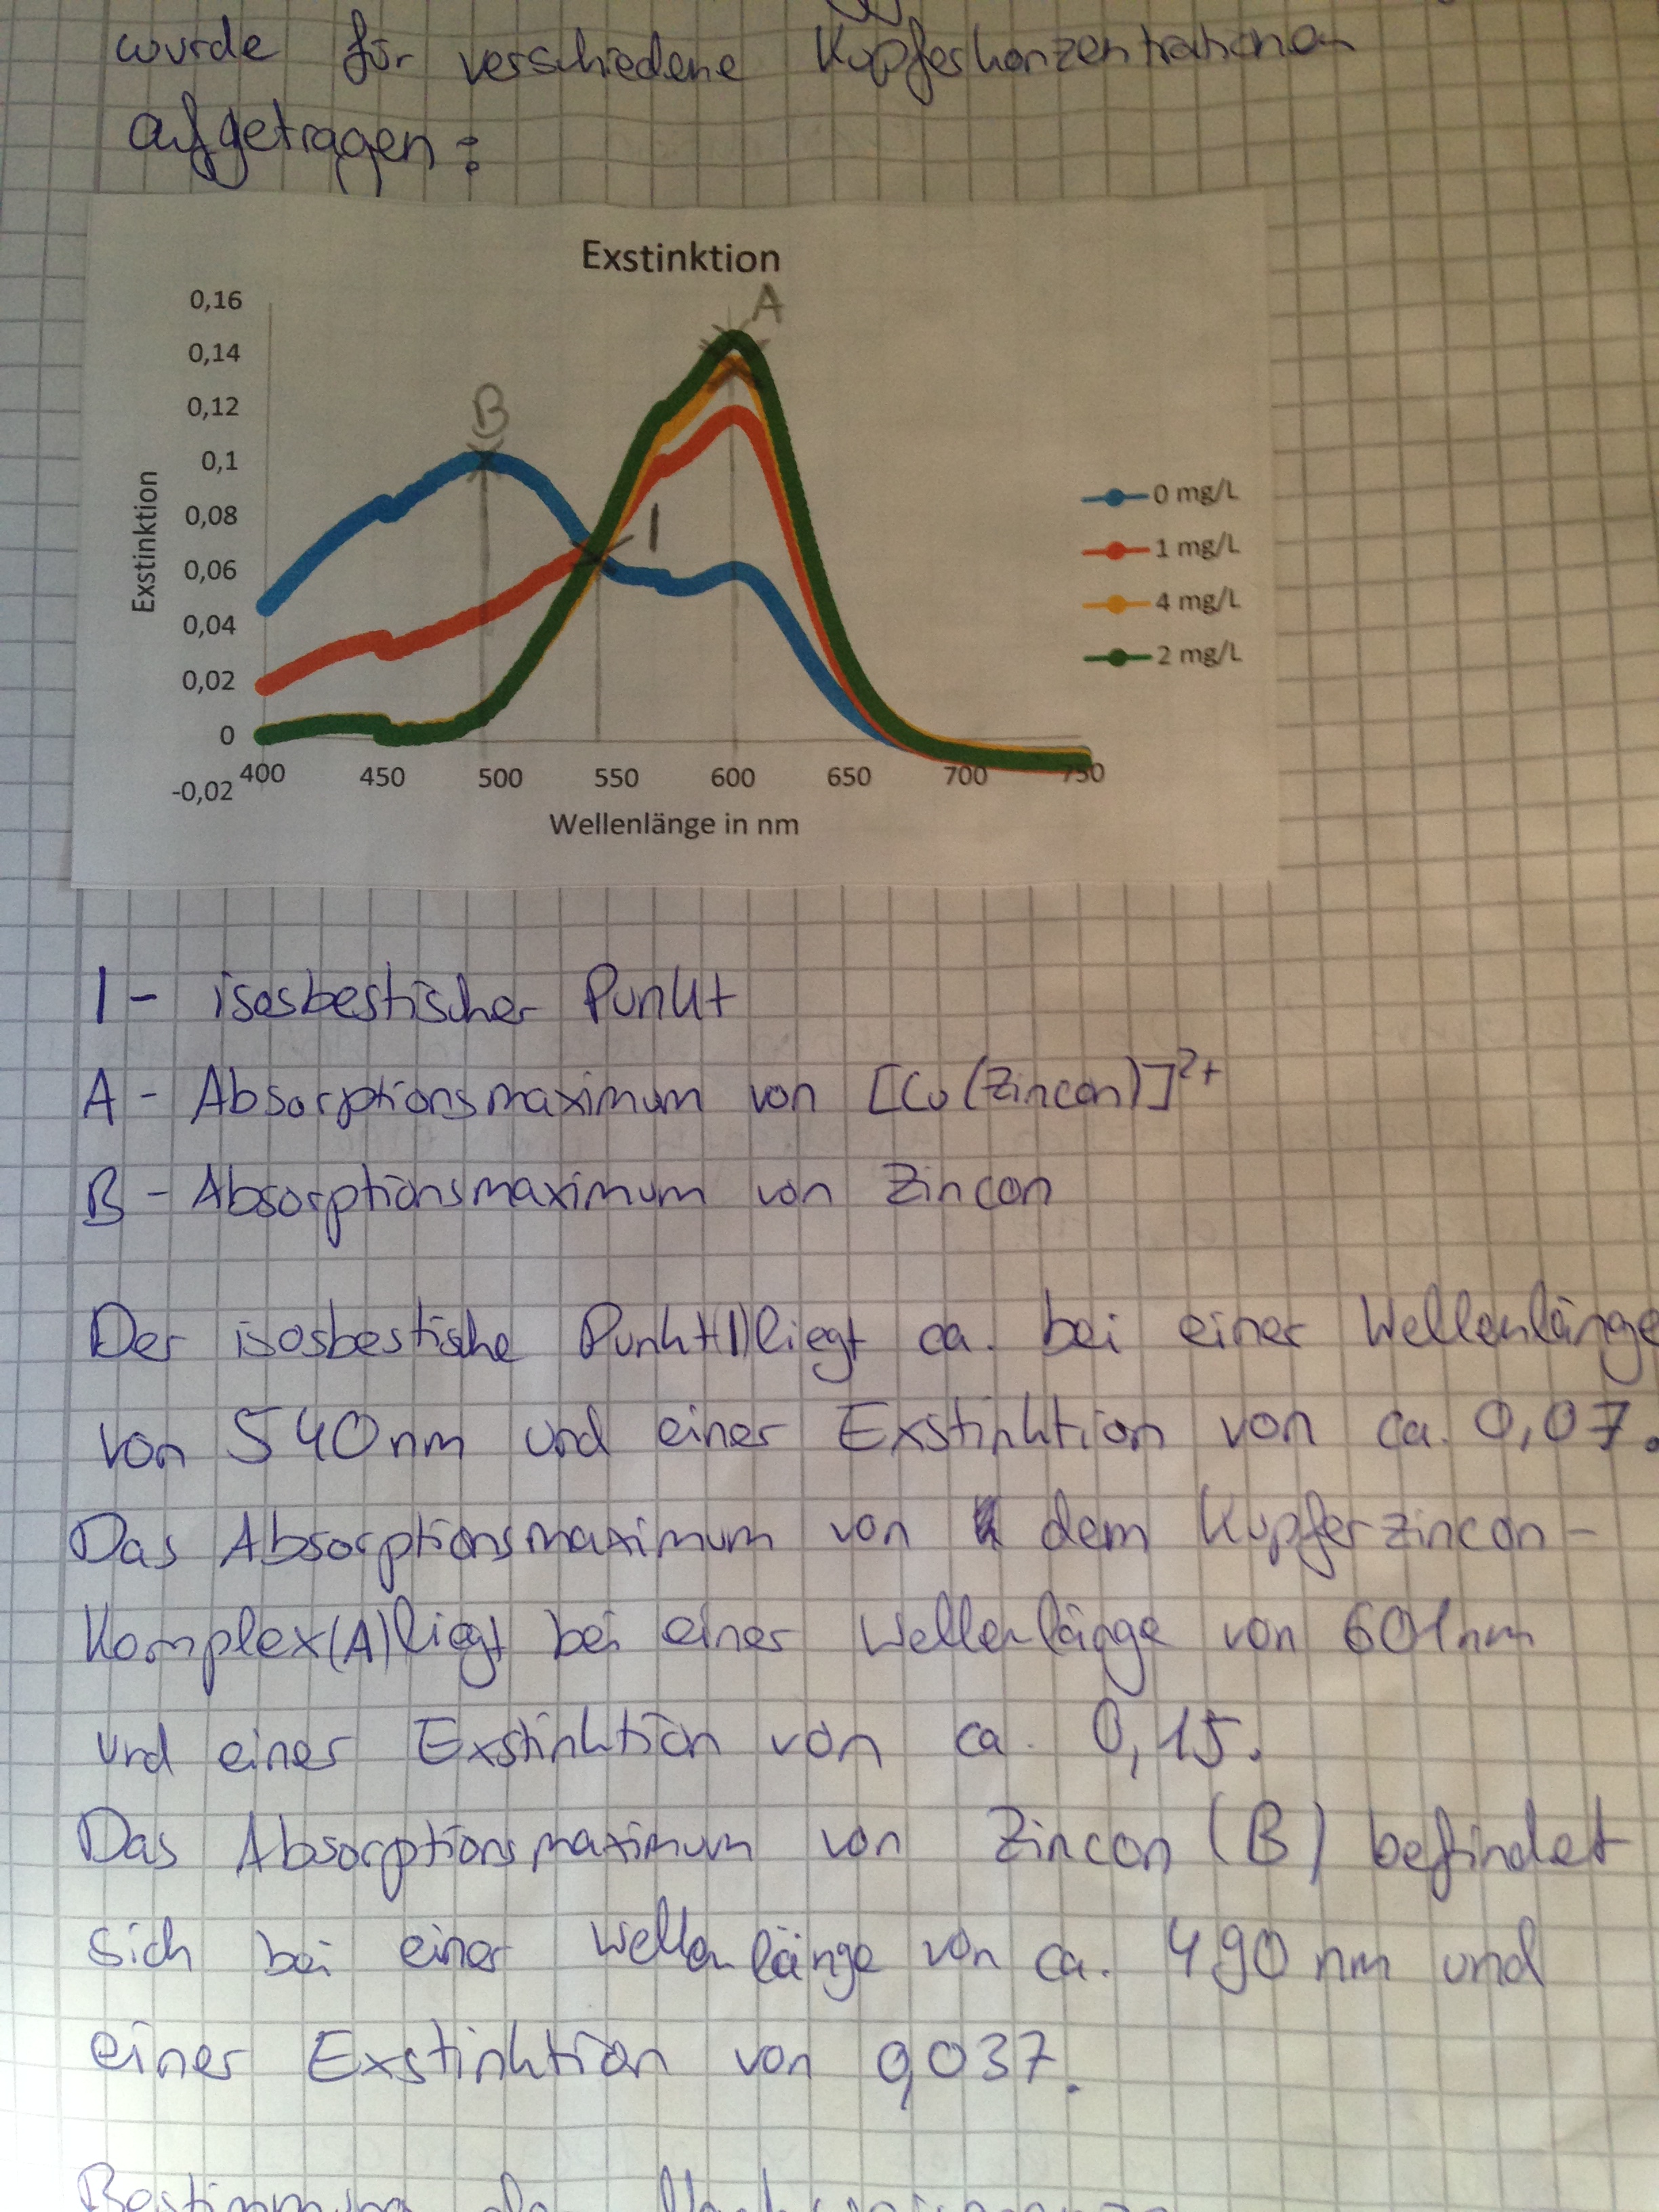 wurde für verschiedene Kupferkonzentrationen
aufgetragen:
Exstinktion
Exstinktion
0,16
0,14
0,12
0,1
0,08
0,06
0,04
0,02
0
-0,02
400 450 500 550 600 650 700 750
Wellenlänge in nm
0 mg/L
1 mg/L
4 mg/L
2 mg/L
B
I
A
I - isosbestischer Punkt
A - Absorptionsmaximum von [Cu(Zincon)]²⁺
B - Absorptionsmaximum von Zincon
Der isosbestische Punkt(I)liegt ca. bei einer Wellenlänge
von 540nm und einer Exstinktion von ca. 0,07.
Das Absorptionsmaximum von dem Kupferzincon-
Komplex(A)liegt bei einer Wellenlänge von 601nm
und einer Exstinktion von ca. 0,15.
Das Absorptionsmaximum von Zincon (B) befindet
sich bei einer Wellenlänge von ca. 490 nm und
einer Exstinktion von 0,037.